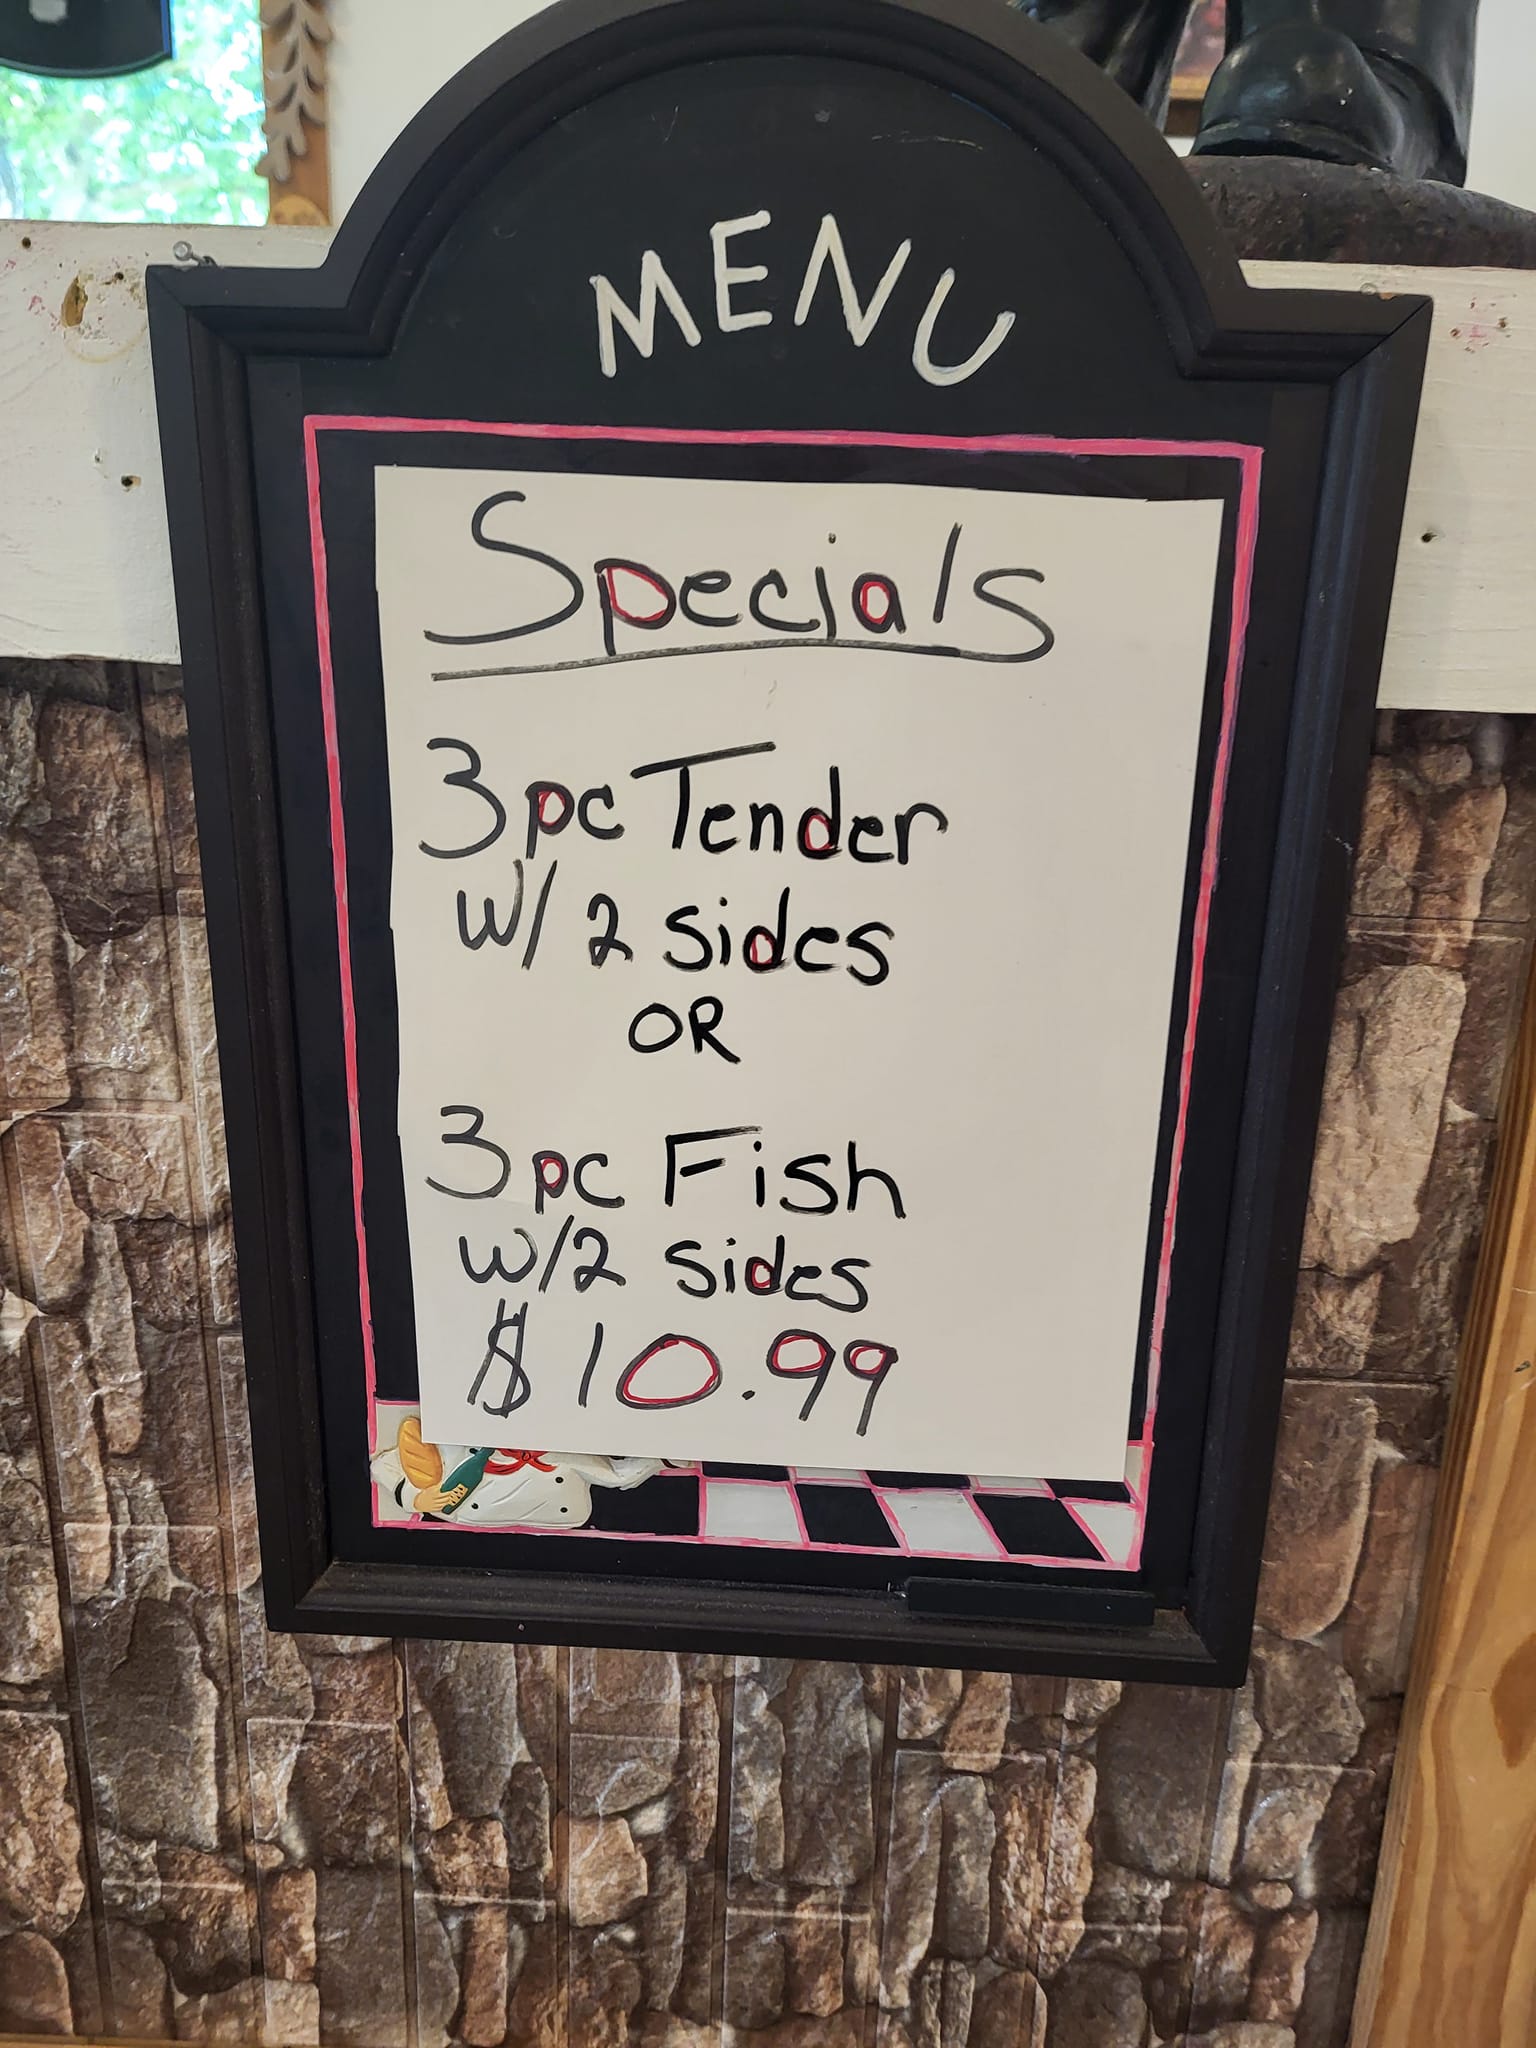 MENU
Specials
3pc Tender
w/ 2 sides
OR
3pc Fish
w/2 sides
$10.99